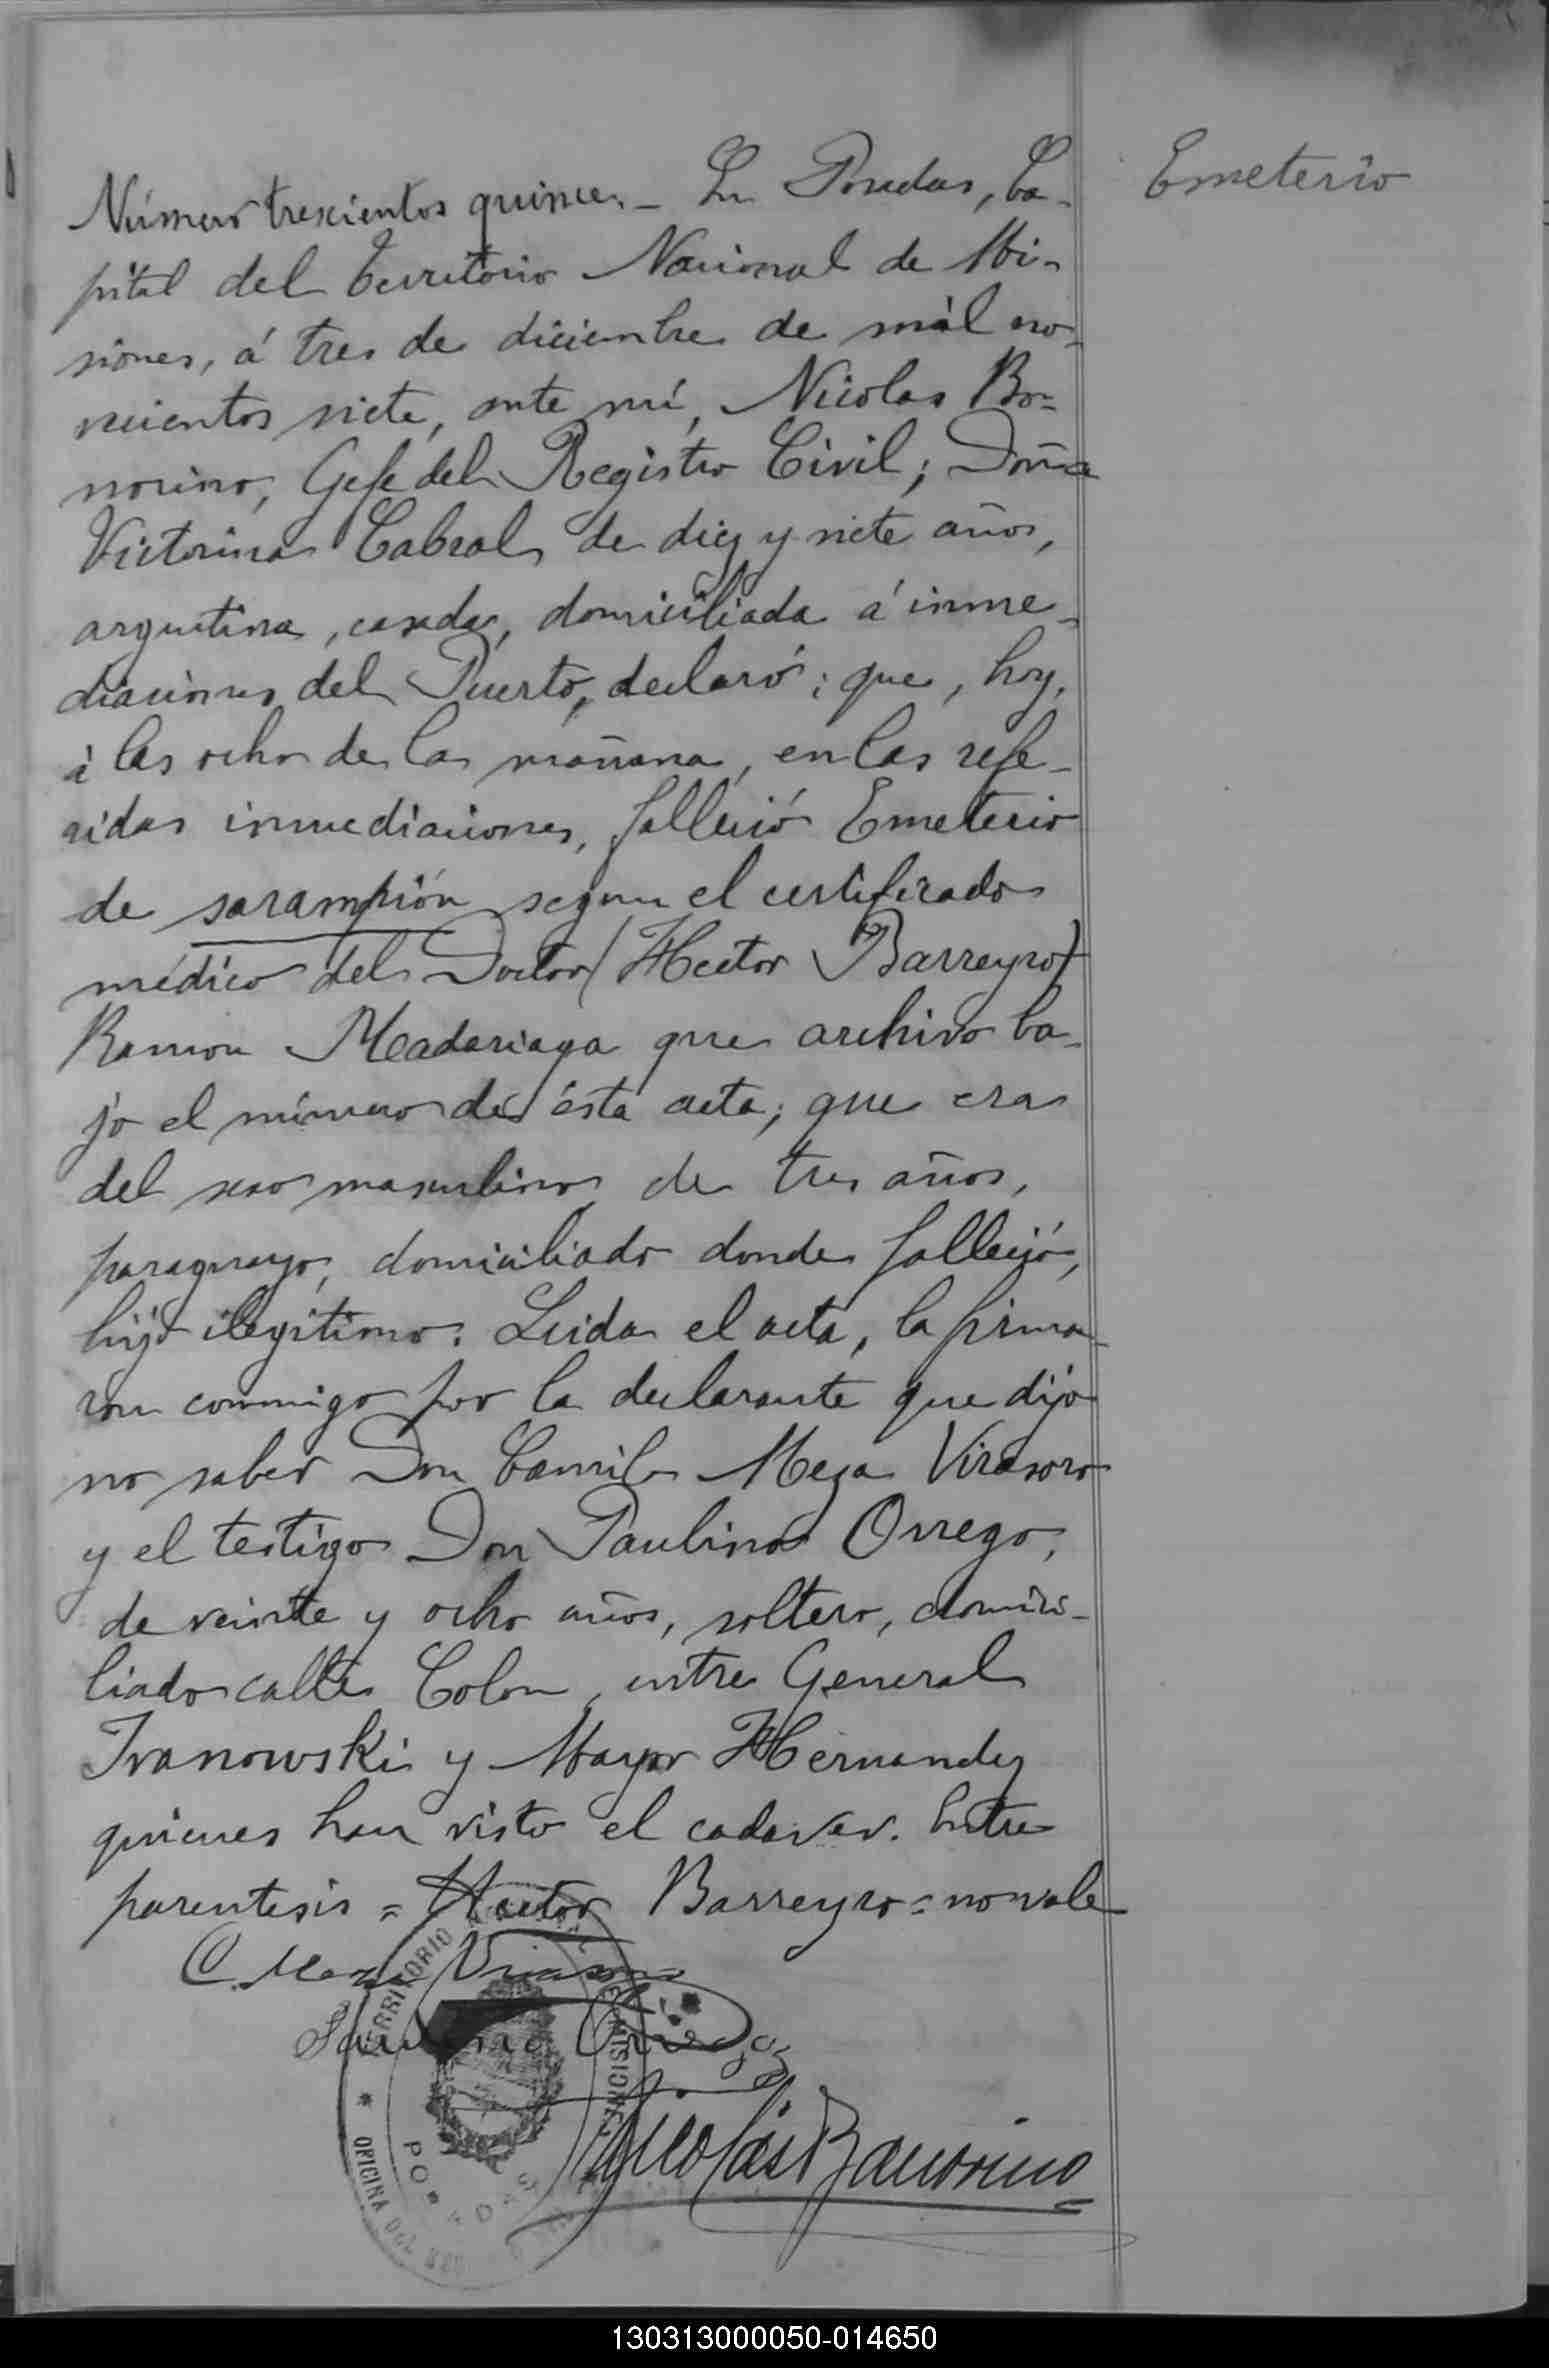 Emeterio
Número trescientos quince. - En Posadas, Ca-
pital del Territorio Nacional de Mi-
siones, á tres de diciembre de mil no-
vecientos siete, ante mí, Nicolas Bo-
norino, Gefe del Registro Civil; Doña
Victorina Cabral de diez y siete años,
argentina, casada, domiciliada á inme-
diaciones del Puerto, declaró: que, hoy,
á las ocho de la mañana, en las refe-
ridas inmediaciones, falleció Emeterio
de sarampión segun el certificado
médico del Doctor (Hector Barreyro)
Ramon Madariaga que archivo ba-
jo el número de ésta acta; que era
del sexo masculino de tres años,
paraguayo, domiciliado donde falleció,
hijo ilegitimo. Leida el acta, la firma-
ron conmigo por la declarante que dijo
no saber Don Camilo Meza Virasoro
y el testigo Don Paulino Orrego,
de veinte y ocho años, soltero, domici-
liado calle Colon, entre General
Ivanowski y Mayor Hernandez
quienes han visto el cadaver. Entre
parentesis = Hector Barreyro = no vale
C. Meza Virasoro
Paulino Orrego
Nicolás Bonorino
TERRITORIO NACIONAL DE MISIONES
OFICINA DEL
POSADAS
130313000050-014650